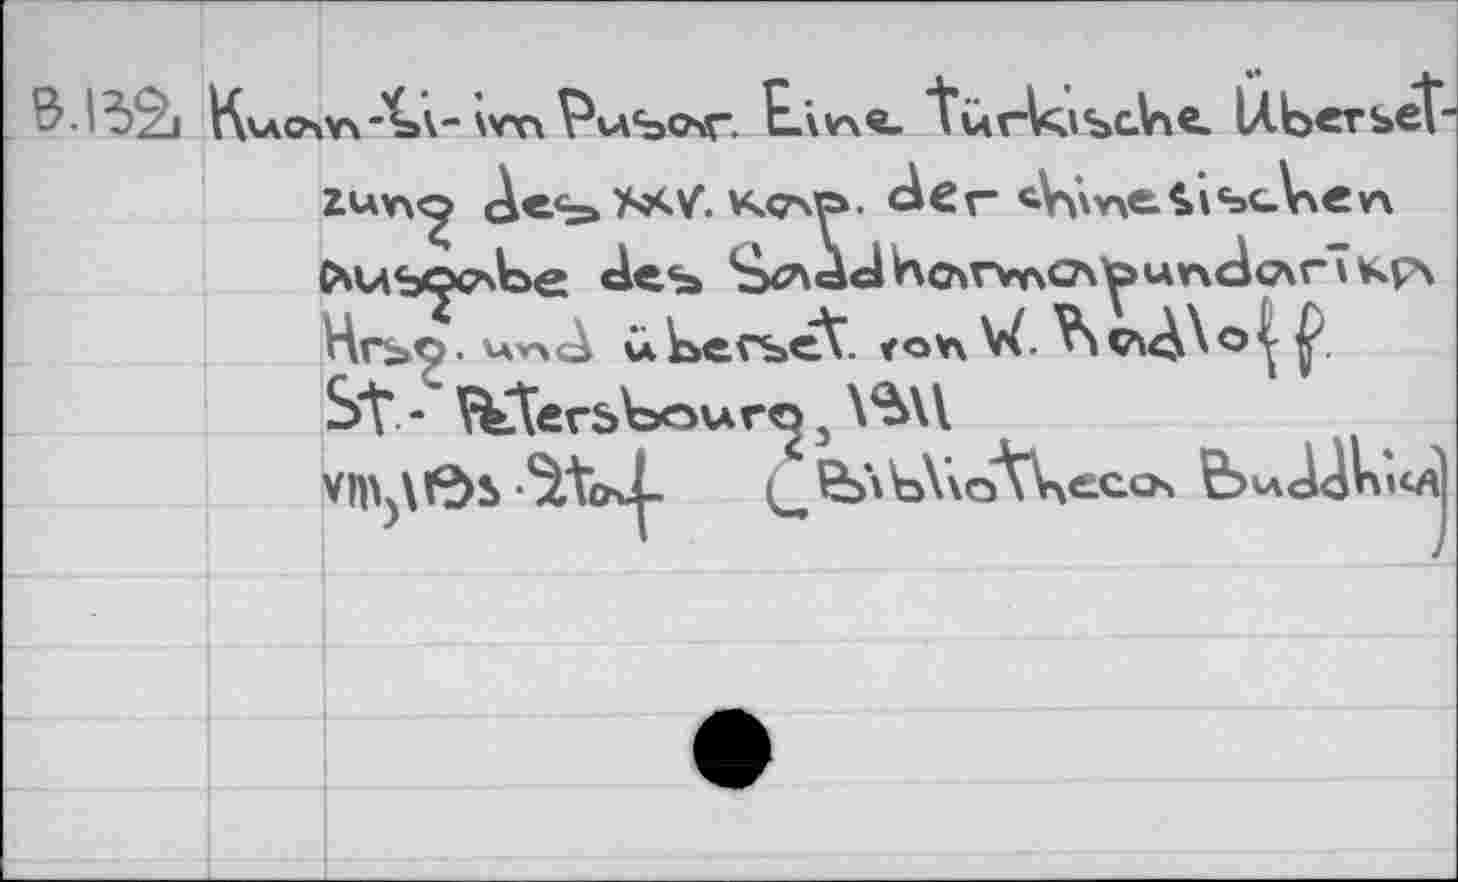 B.1392 Kuan-ši-im Pusar. Eine türkische Überset-
zung des XXV. kap. der chinesischen
Ausgabe des Saddharmapundarīka
Hrsg. und überset. von W. Radloff.
St.-Petersbourg, 1911
VIII, 119 S. 2 Taf. (Bibliotheca Buddhica)